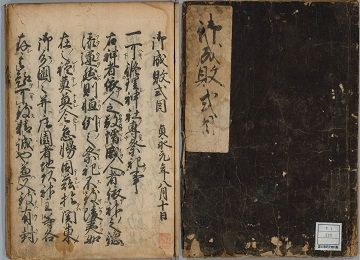 御成敗式目
御成敗式目 貞永元年八月十日
一可修理神社専祭祀事
右神者依人之敬増威人者依神之徳
添運然則恒例之祭祀不致陵夷如
在之礼奠莫令怠慢因茲於関東
御分国々并庄園者地頭神主等各
存其趣可致精誠也兼又至有封